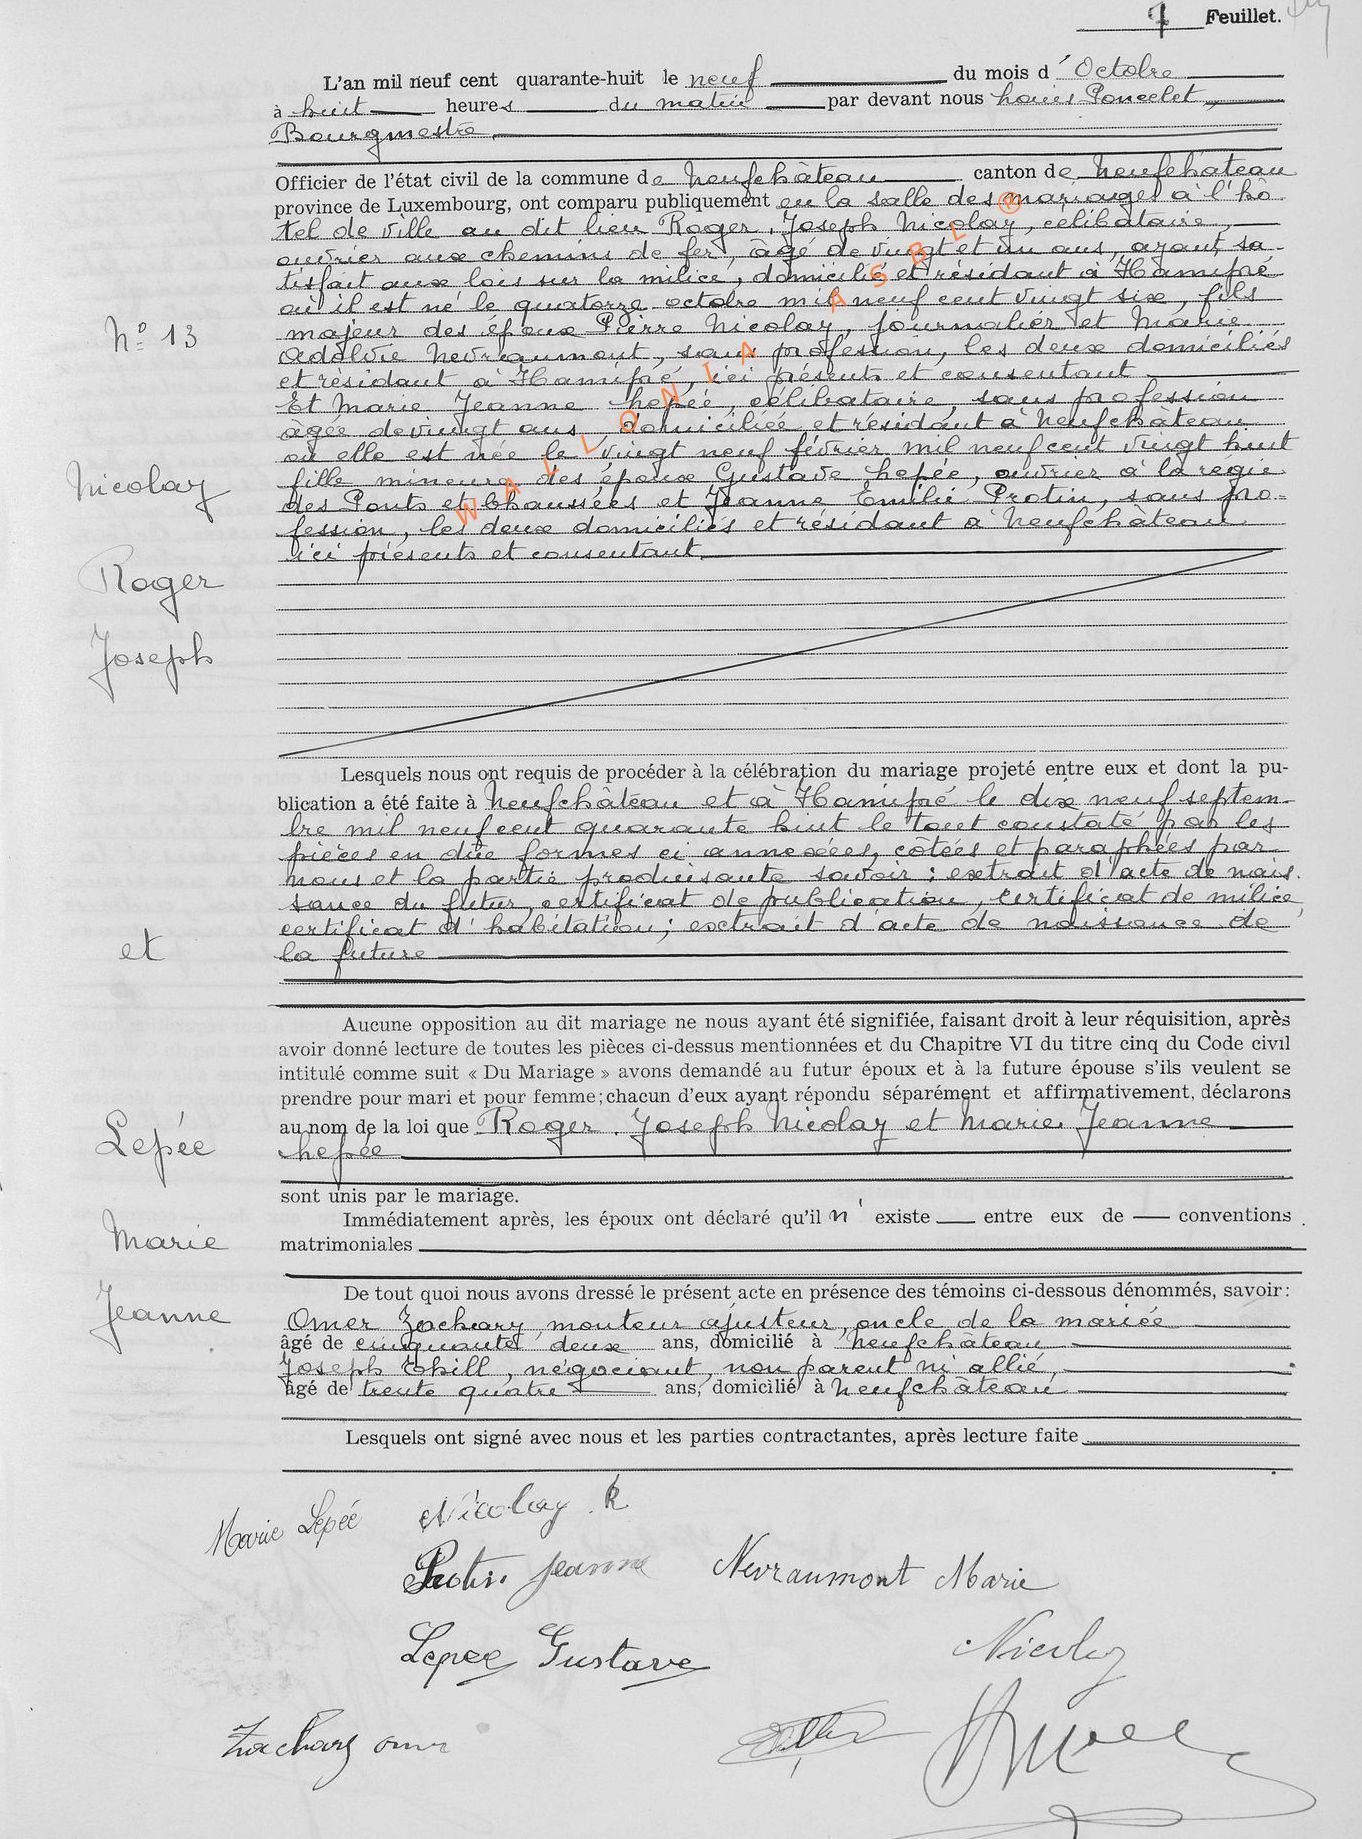 9 Feuillet.
L'an mil neuf cent quarante-huit le neuf du mois d' Octobre
à huit heures du matin par devant nous Louis Poncelet,
Bourgmestre,
Officier de l'état civil de la commune de Neufchâteau canton de Neufchâteau
province de Luxembourg, ont comparu publiquement en la salle des mariages à l'hô
tel de ville au dit lieu Roger, Joseph Nicolay, célibataire,
ouvrier aux chemins de fer, âgé de vingt et un ans, ayant sa
tisfait aux lois sur la milice, domicilié et résidant à Hamipré
où il est né le quatorze octobre mil neuf cent vingt six, fils
majeur des époux Pierre Nicolay, journalier et Marie
Adolvie Nevraumont, sans profession, les deux domiciliés
et résidant à Hamipré, ici présents et consentant
Et Marie Jeanne Lepée, célibataire, sans profession
âgée de vingt ans domiciliée et résidant à Neufchâteau
où elle est née le vingt neuf février mil neuf cent vingt huit
fille mineure des époux Gustave Lepée, ouvrier à la régie
des Ponts et Chaussées et Jeanne Emilie Protin, sans pro-
fession, les deux domiciliés et résidant à Neufchâteau
ici présents et consentant.
WALLONIA ASBL ®
N° 13
Nicolay
Roger
Joseph
et
Lepée
Marie
Jeanne
Lesquels nous ont requis de procéder à la célébration du mariage projeté entre eux et dont la pu-
blication a été faite à Neufchâteau et à Hamipré le dix neuf septem-
bre mil neuf cent quarante huit le tout constaté par les
pièces en due formes ci annexées, côtées et paraphées par
nous et la partie produisante savoir : extrait d'acte de nais.
sance du futur, certificat de publication, certificat de milice,
certificat d'habitation ; extrait d'acte de naissance de
la future
Aucune opposition au dit mariage ne nous ayant été signifiée, faisant droit à leur réquisition, après
avoir donné lecture de toutes les pièces ci-dessus mentionnées et du Chapitre VI du titre cinq du Code civil
intitulé comme suit « Du Mariage » avons demandé au futur époux et à la future épouse s'ils veulent se
prendre pour mari et pour femme; chacun d'eux ayant répondu séparément et affirmativement, déclarons
au nom de la loi que Roger. Joseph Nicolay et Marie Jeanne
Lepée
sont unis par le mariage.
Immédiatement après, les époux ont déclaré qu'il n' existe entre eux de conventions
matrimoniales
De tout quoi nous avons dressé le présent acte en présence des témoins ci-dessous dénommés, savoir:
Omer Zachary, monteur ajusteur, oncle de la mariée
âgé de cinquante deux ans, domicilié à Neufchâteau
Joseph Thill, négociant, non parent ni allié,
âgé de trente quatre ans, domicilié à Neufchâteau
Lesquels ont signé avec nous et les parties contractantes, après lecture faite
Marie Lepée Nicolay R
Protin Jeanne Nevraumont Marie
Lepee Gustave Nicolay
Zachary Omer